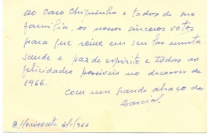 ao caro Chiquinho e todos de sua
família, os nossos sinceros votos
para que reine em seu lar muita
saude e paz de espirito e todas as
felicidades possiveis no decorrer de
1966.
Com um grande abraço do